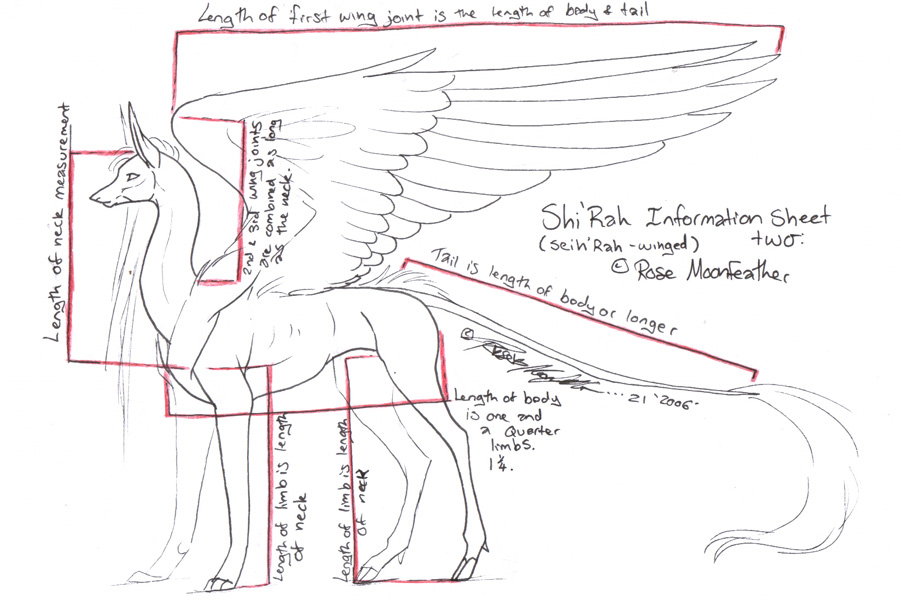 Length of first wing joint is the length of body & tail
Length of neck measurement
2nd & 3rd wing joints
are combined as long
as the neck.
Shi'Rah Information Sheet
two:
(Seih'Rah - winged)
© Rose Moonfeather
Tail is length of body or longer
©
21 '2006
Length of body
is one and
a Quarter
limbs.
1¼.
Length of limb is length
of neck
Length of limb is length
of neck